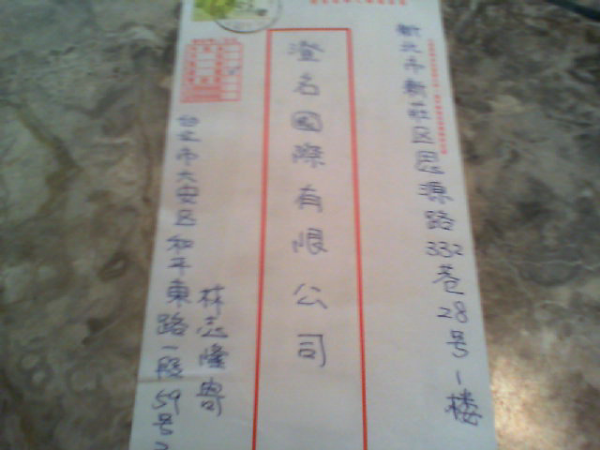 新北市新莊区思源路332巷28号1樓
澄名國際有限公司
林志隆寄
台北市大安区和平東路一段59号